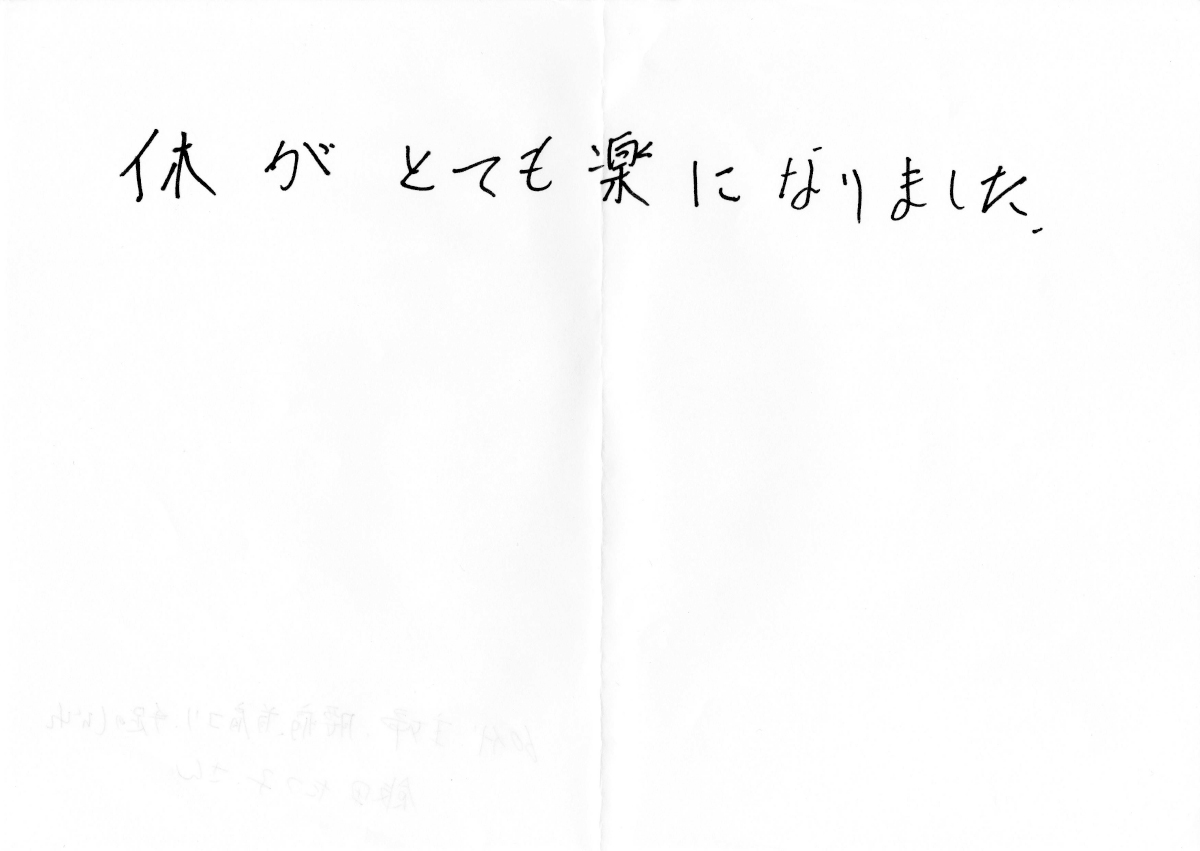 体がとても楽になりました.